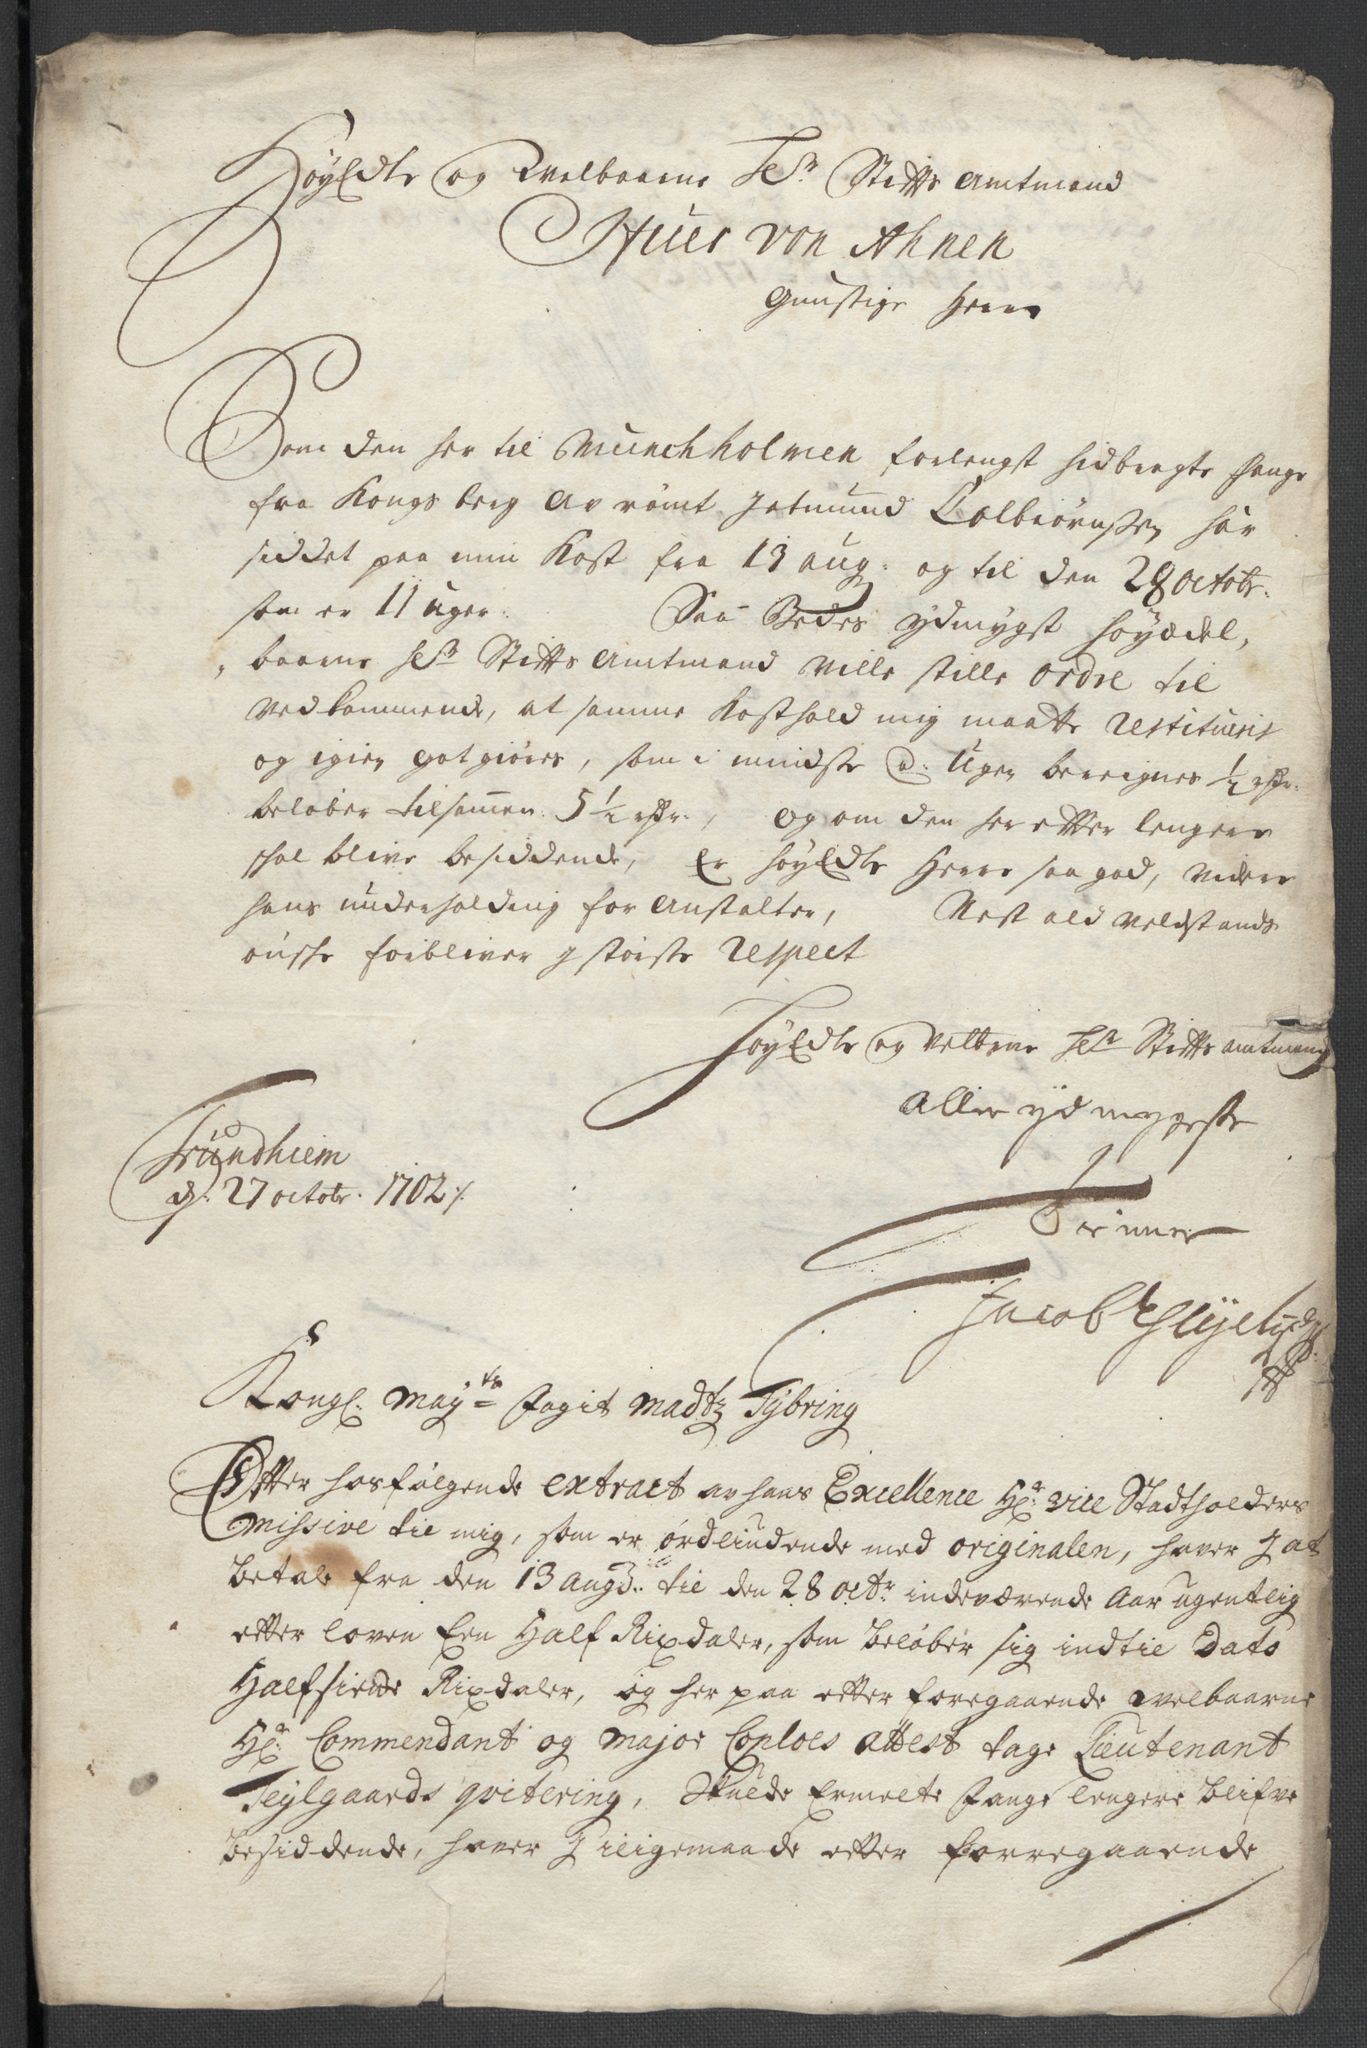 HøyEdle og Welbaarne Hr Stiffts Amtmand
Iffuer von Ahnen
gunstige Herre
Som den her til Munchholmen forlengst hidbragte fange
fra Kongsberg Av rømt Jetmund Colbiørnssen har
siddet paa min Kost fra 13 aug: og til den 28 octobr:
som er 11 uger. Saa Bedes ydmygst høyædel,
baarne Hr Stiffts Amtmand ville stille ordre til
Vedkommende, at samme Kosthold mig maatte restitueris
og igien gotgiøres, som i mindste a: Ugen beregnes ½ rdr:
beløber tilsammen: 5½ rdr:, og om den her effter lengere
skal blive besiddende, Er HøyEdle Herre saa god, videre
hans underholding for Anstalter, Nest ald velstands
ønske forbliver J største respect
HøyEdle og Velbrne Hr Stiffts amtmand
Aller ydmygeste
Tienner
Jacob
Trundhiem
d: 27 octobr: 1702 ⁒
Kongl: Mayts Fogit Madtz Tybring
Effter hosfølgende extract av hans Excellence Hr: vice Stadtholders
Missive til mig, som er ordliudende med originalen, haver J at
betale fra den 13 augs: til den 28 octr: indeværende Aar ugentlig
effter loven Een Half Rixdaler, som beløber sig indtil Dato
Halfsiette Rixdaler, og her paa effter foregaaende welbaarne
Hr: Commendant og Major Coploes attest tage Lieutenant
Teylgaards qvitering, Skulde Ermelte Fange lengere blifve
besiddende, haver J iligemaade effter forregaaende